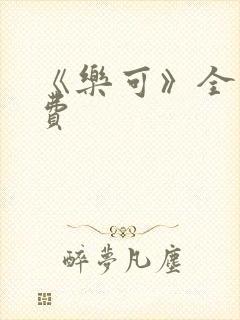 《樂可》全
費
醉夢凡塵